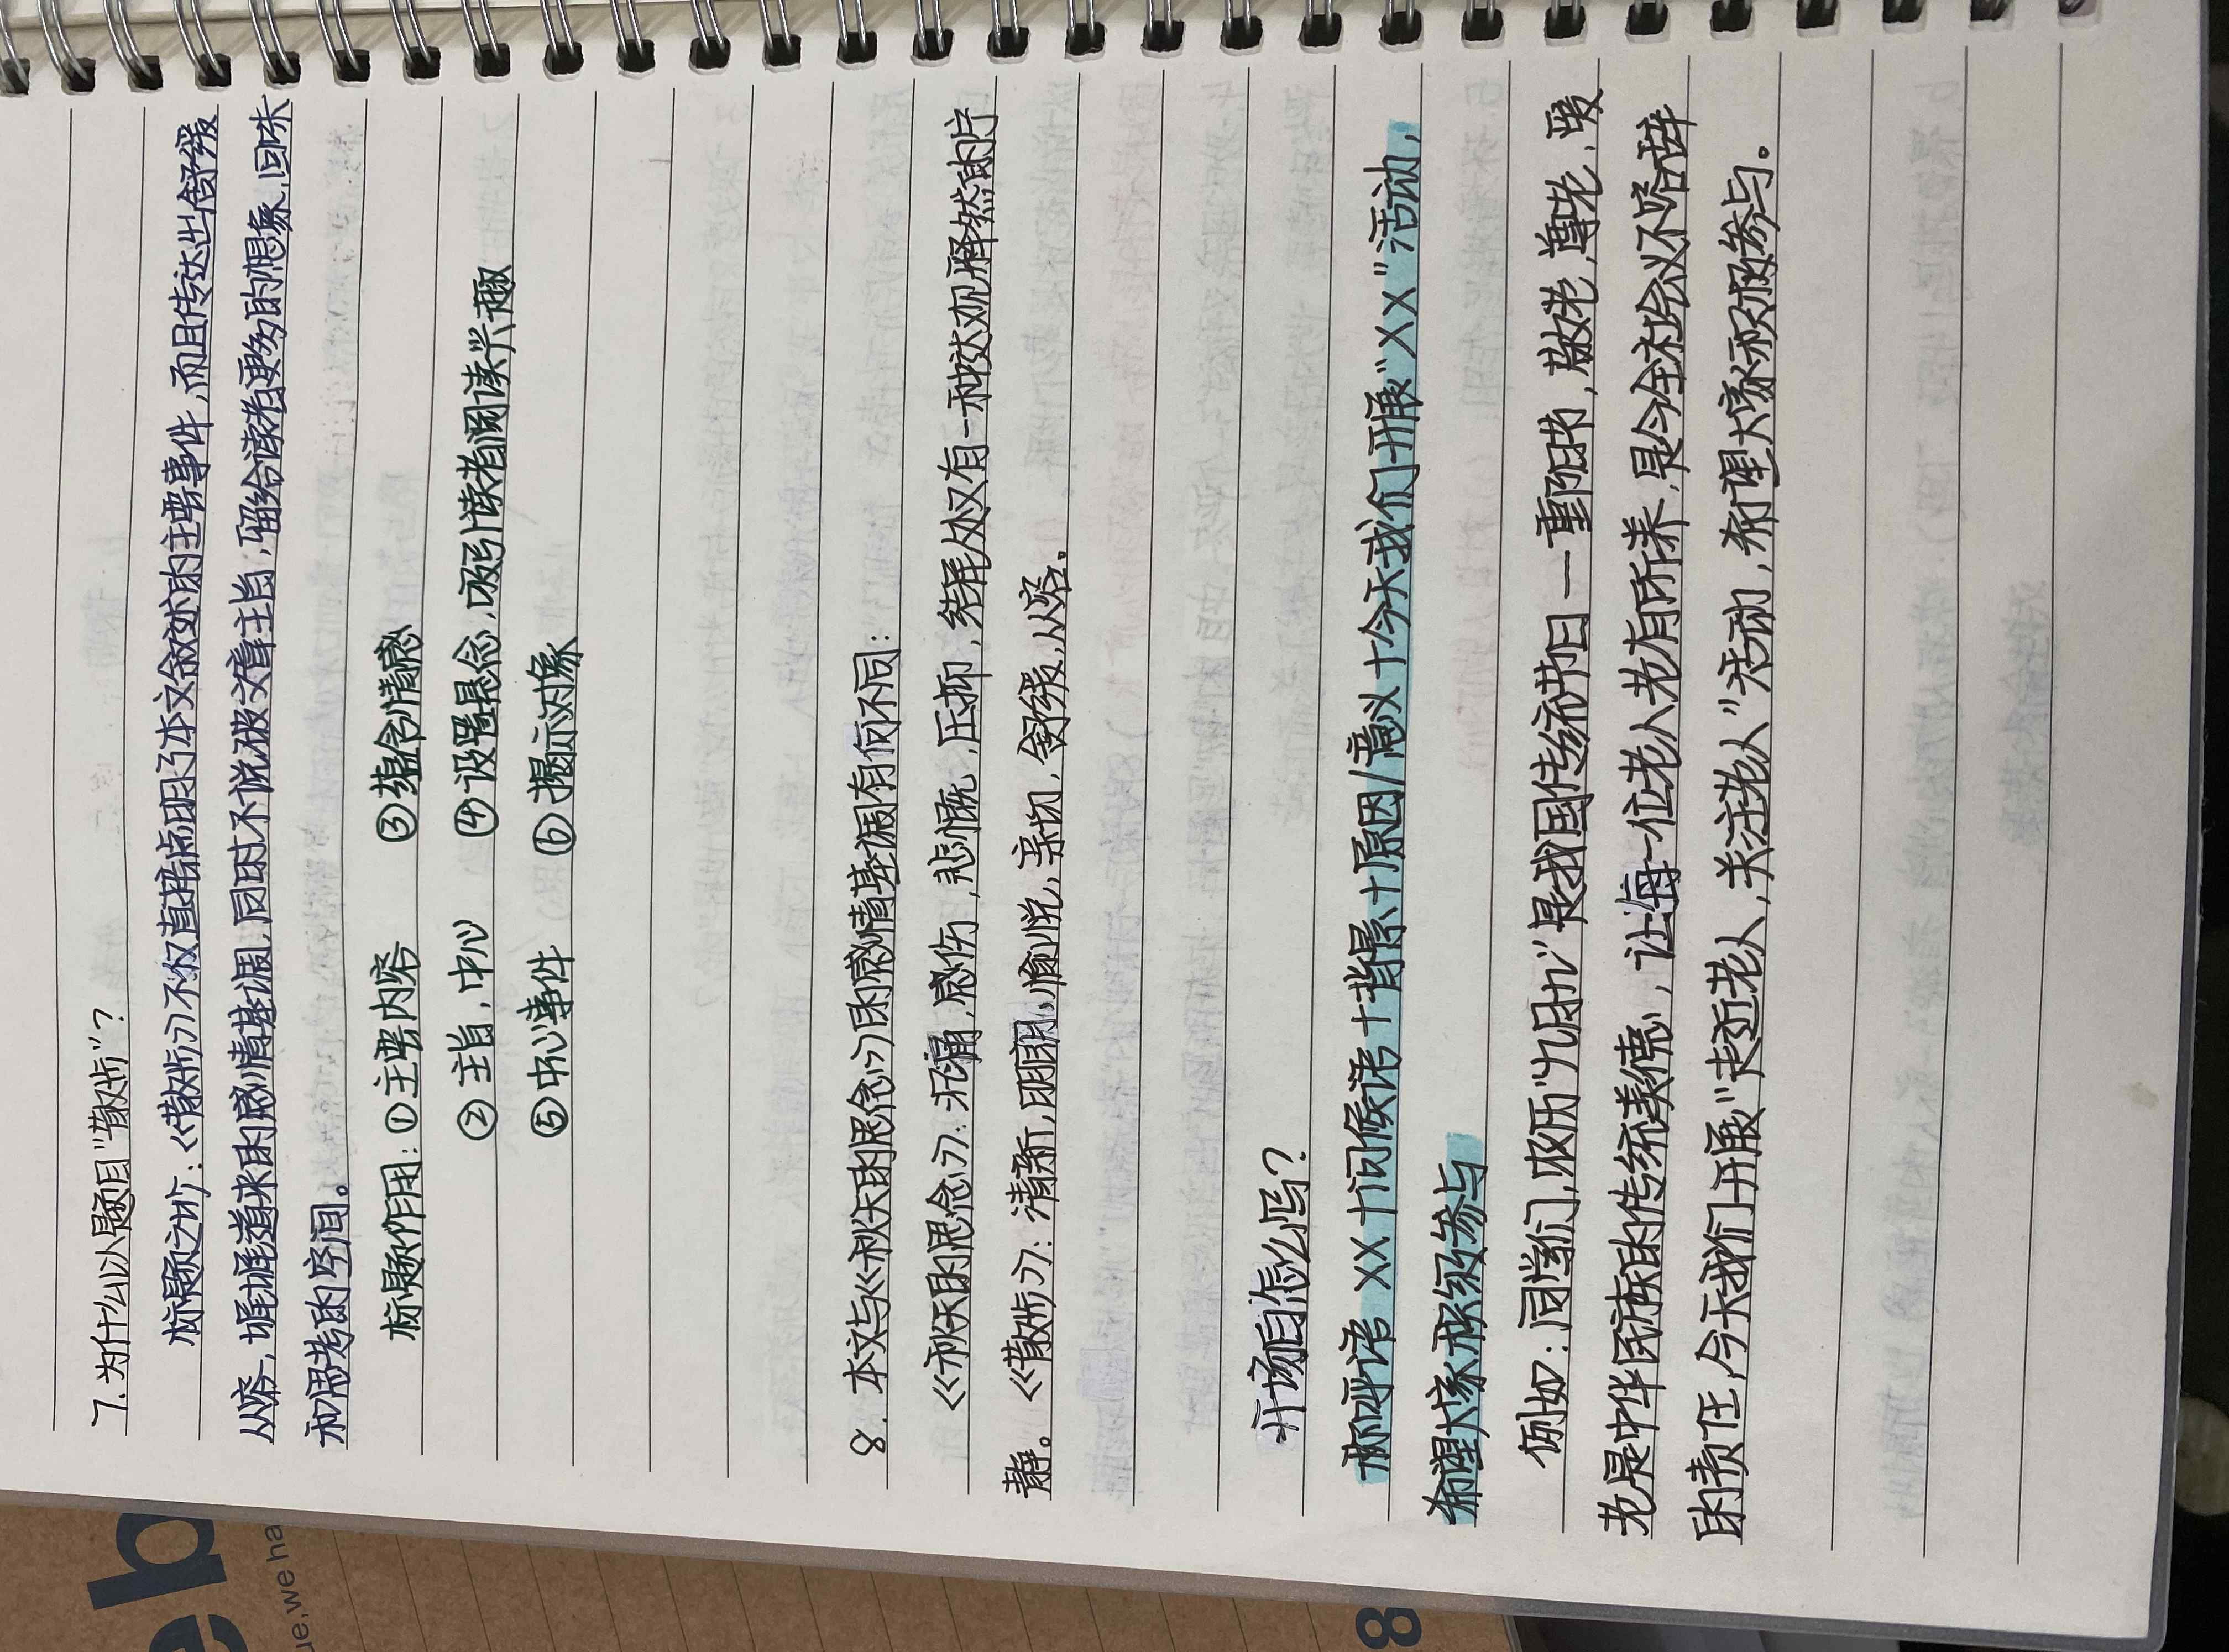 7.为什么以题目"散步"?
标题之妙:《散步》不仅直接点明了本文叙述的主要事件,而且传达出舒缓
从容,娓娓道来的感情基调,同时不说破文章主旨,留给读者更多的想象,回味
和思考的空间。
标题作用:①主要内容 ③蕴含情感
②主旨,中心 ④设置悬念,吸引读者阅读兴趣
⑤中心事件 ⑥揭示对象
8.本文与《秋天的思念》的感情基调有何不同:
《秋天的思念》:沉痛,感伤,悲慨,压抑,结尾处又有一种较为观释然的片
静。《散步》:清新,明朗,愉悦,亲切,舒缓,从容。
开场白怎么吗?
称呼语 XX+问候语+背景+原因/意义+今天我们开展"XX"活动,
希望大家积级参与
例如:同学们,农历"九月九"是我国传统节日一重阳节,敬老,尊老,爱
老是中华民族的传统美德,让每一位老人老有所养,是今全社会义不容辞
的责任,今天我们开展"走近老人,关注老人"活动,希望大家积极参与。
ue,we ha
8